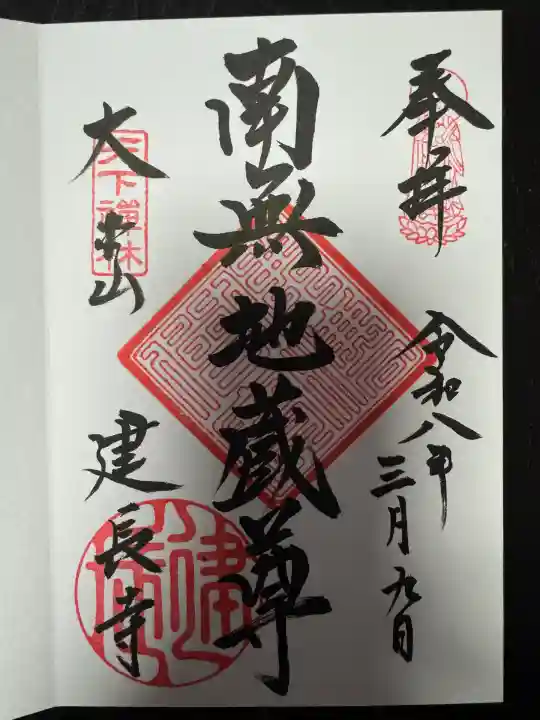 奉拝
令和八年
三月九日
南無地蔵尊
大本山
建長寺
天下禅林